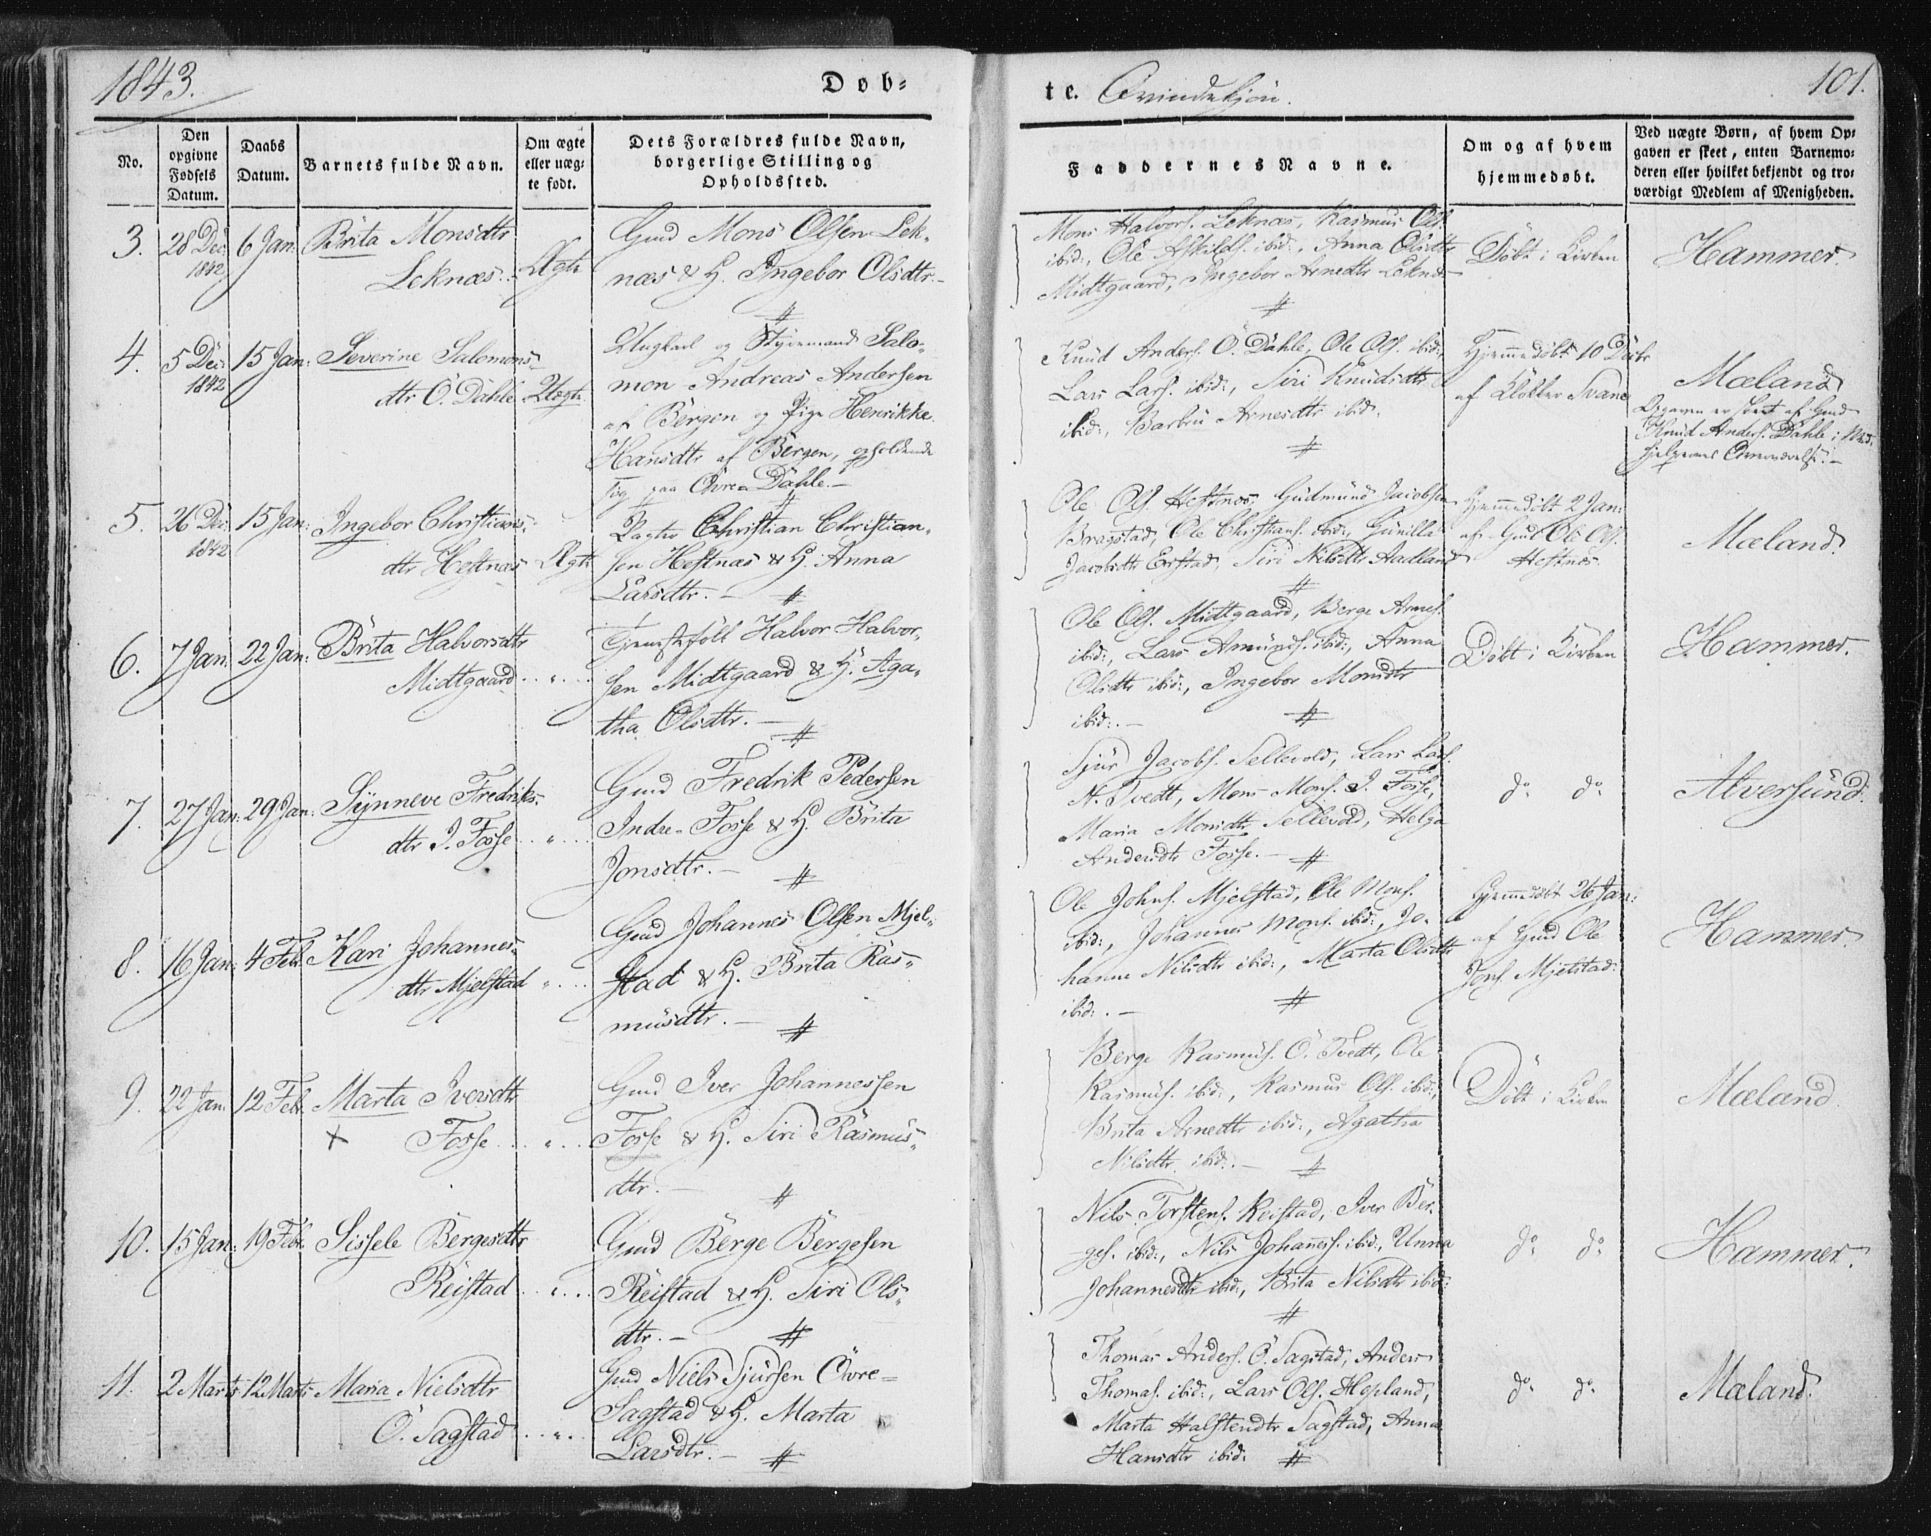 1843.
Døb-
te. Qvindekjön.
101.
No.
Den opgivne Fødsels Datum.
Daabs Datum.
Barnets fulde Navn.
Om ægte eller uægte født.
Dets Forældres fulde Navn, borgerlige Stilling og Opholdssted.
Faddernes Navne.
Om og af hvem hjemmedøbt.
Ved uægte Børn, af hvem Opgaven er skeet, enten Barnemoderen eller hvilket bekjendt og troværdigt Medlem af Menigheden.
3. 28 Dec: 1842 6 Jan: Brita Monsdtr
Leknæs. Ægte
Gmd Mons Olsen Lek-
næs & H. Ingebor Olsdtr.
Mons Halvors. Leknæs, Rasmus Ols.
ibid:, Ole Askilds. ibid:, Anna Olsdtr
Midtgaard, Ingebor Arnedtr Leknæs
Döbt i Kirken
Hammer.
4. 5 Dec: 1842 15 Jan: Severine Salomons-
dtr Ö. Dahle Uægte
Ungkarl og Styrmand Salo-
mon Andreas Andersen
af Bergen og Pige Henrikke
Hansdtr af Bergen, opholdende
sig paa Övre Dahle.
Knud Anders. Ö. Dahle, Ole Ols. ibid:,
Lars Lars. ibid:, Siri Knudsdtr
ibid:, Barbru Arnesdtr ibid:
Hjemmedöbt 10 Decbr
af Klokker Svane
Mæland
Opgaven er skeet af Gmd
Knud Anders. Dahle i Med-
hjelpernes Overværelse.
5. 26 Dec: 1842 15 Jan: Ingebor Christians-
dtr Hestnæs Ægte
Christian Christian-
sen Hestnæs & H. Anna
Larsdtr.
Ole Ols. Hestnæs, Gudmund Jacobsen
Bragstad, Ole Christians. ibid:, Gunilla
Jacobsdtr Erstad, Siri Nilsdtr Aadland
Hjemmedöbt 2 Jan:
af Gmd Ole Ols.
Hestnæs.
Mæland.
6. 7 Jan: 22 Jan: Brita Halvorsdtr
Midtgaard "
Tjenestefolk Halvor Halvor-
sen Midtgaard & H. Aga-
tha Olsdtr.
Ole Ols. Midtgaard, Berge Arnes.
ibid:, Lars Amunds. ibid:, Anna
Olsdtr ibid:, Ingebor Monsdtr
ibid:
Döbt i Kirken
Hammer.
7. 27 Jan: 29 Jan: Synneve Fredriks-
dtr I. Fosse "
Gmd Fredrik Pedersen
Indre Fosse & H. Brita
Jonsdtr.
Sjur Jacobs. Sellevold, Lars Lars.
N. Tvedt, Mons Mons. I. Fosse,
Maria Monsdtr Sellevold, Helga
Andersdtr Fosse.
do do
Alversund.
8. 16 Jan: 4 Feb: Kari Johannes-
dtr Mjelstad "
Gmd Johannes Olsen Mjel-
stad & H. Brita Ras-
musdtr.
Ole Johns. Mjelstad, Ole Mons.
ibid:, Johannes Mons. ibid:, Jo-
hanne Nilsdtr ibid:, Marta Olsdtr
ibid:
Hjemmedöbt 26 Jan:
af Gmd Ole
Jons. Mjelstad.
Hammer.
9. 22 Jan: 12 Feb. Marta Iversdtr
Fosse "
Gmd Iver Johannessen
Fosse & H. Siri Rasmus-
dtr.
Berge Rasmus. Ö. Tvedt, Ole
Rasmus. ibid:, Rasmus Ols. ibid:,
Brita Arnedtr ibid:, Agatha
Nilsdtr ibid:
Döbt i Kirken
Mæland.
10. 15 Jan: 19 Feb. Sissele Bergesdtr
Reistad "
Gmd Berge Bergesen
Reistad & H. Siri Ols-
dtr.
Nils Torstens. Reistad, Iver Ber-
ges. ibid:, Nils Johanness. ibid:, Unna
Johannesdtr ibid:, Brita Nilsdtr ibid:
do do
Hammer.
11. 2 Marts 12 Marts Maria Nielsdtr
Ö. Sagstad "
Gmd Niels Sjursen Övre-
Sagstad & H. Marta
Larsdtr.
Thomas Anders. Ö. Sagstad, Anders
Thomas. ibid:, Lars Ols. Hopland,
Marta Halstendtr Sagstad, Anna
Hansdtr ibid:
do do
Mæland.